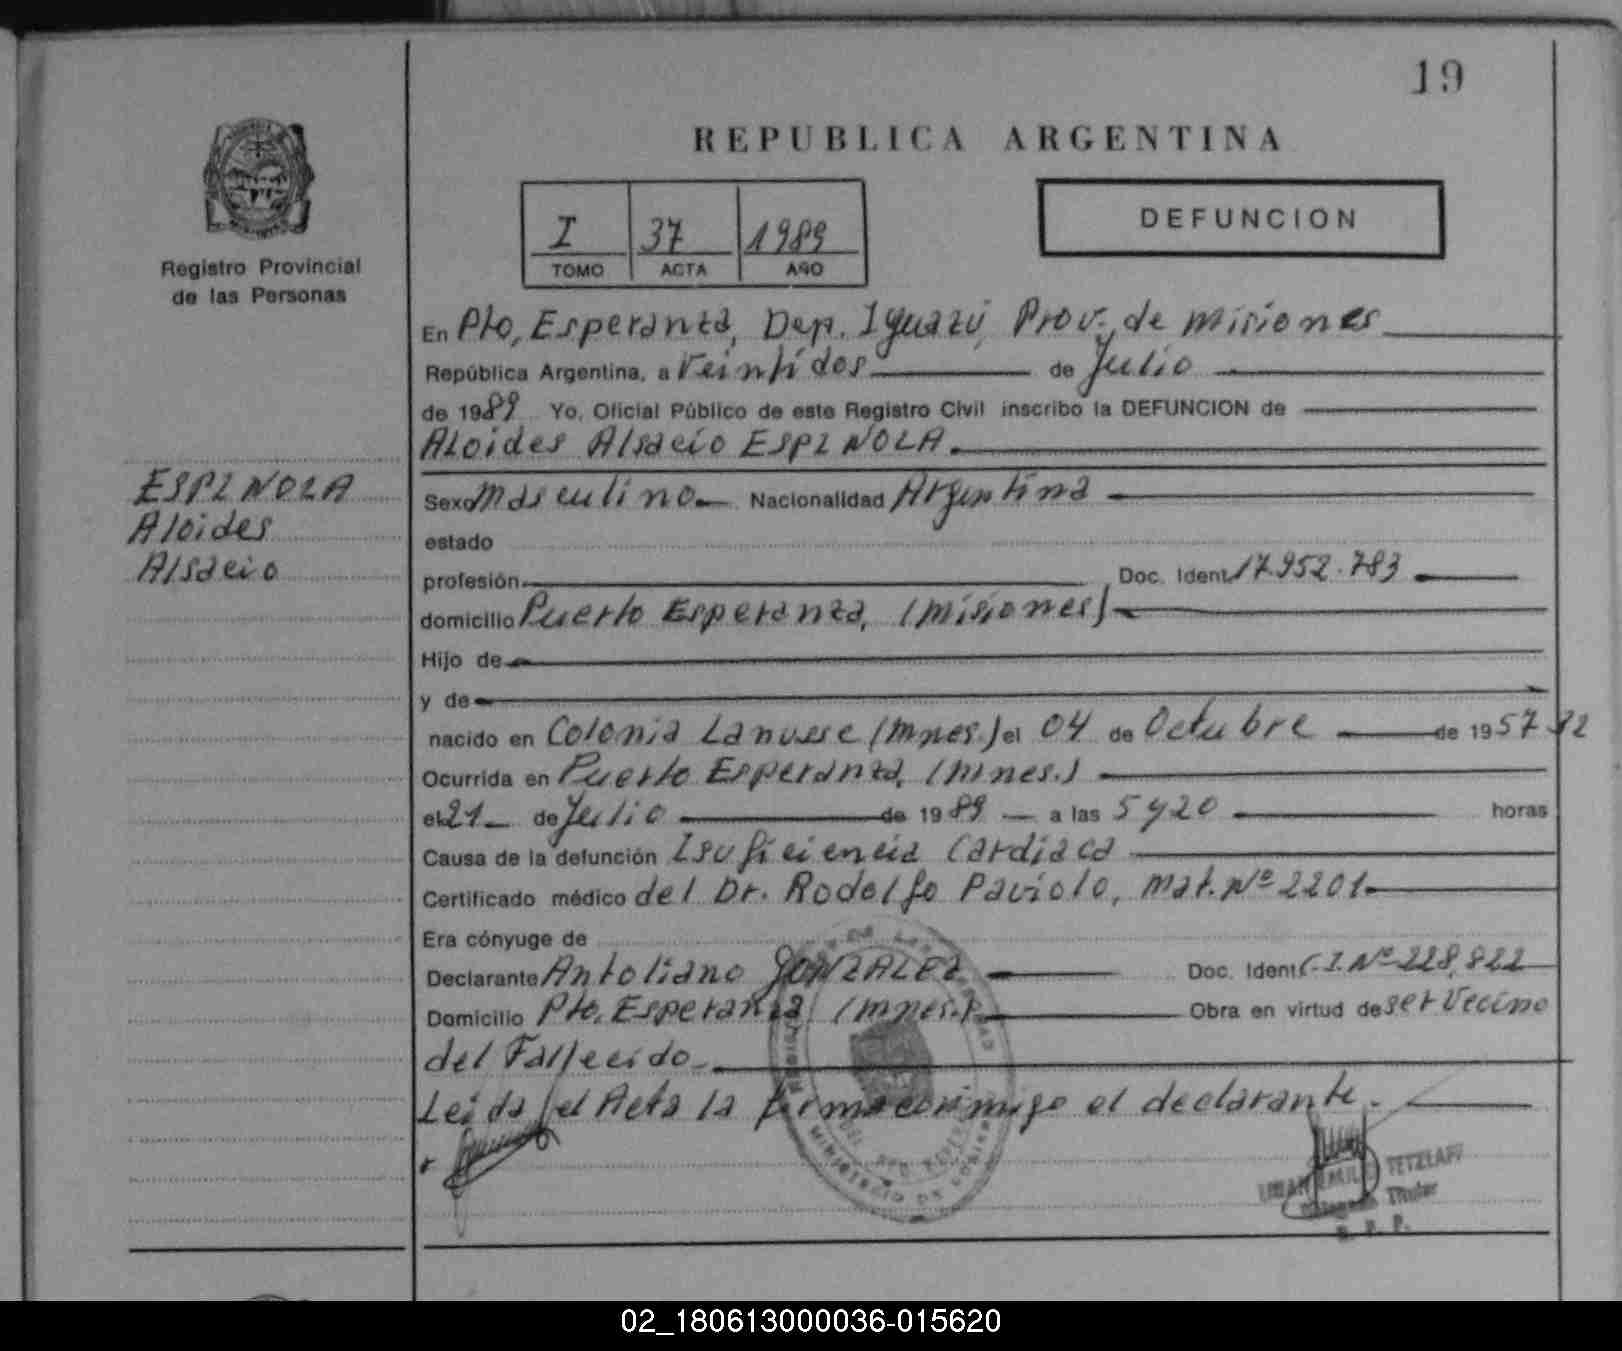 19
REPUBLICA ARGENTINA
I 37 1989
TOMO ACTA AÑO
DEFUNCION
Registro Provincial
de las Personas
En Pto, Esperanza, Dep. Iguazú, Prov. de Misiones
República Argentina, a Veintidos de Julio
de 1989 Yo, Oficial Público de este Registro Civil inscribo la DEFUNCION de
ALoides Alsacio ESPINOLA.
ESPINOLA
Aloides
Alsacio
Sexo Masculino Nacionalidad Argentina
estado
profesión Doc. Ident. 17.952.783
domicilio Puerto Esperanza, (Misiones)
Hijo de
y de
nacido en Colonia Lanusse (Mnes.) el 04 de Octubre de 1957 32
Ocurrida en Puerto Esperanza, (Mnes.)
el 21 de Julio de 1989 a las 5 y 20 horas
Causa de la defunción Isuficiencia Cardiaca
Certificado médico del Dr. Rodolfo Paviolo, Mat. Nº 2201
Era cónyuge de
Declarante Antoliano GONZALEZ Doc. Ident C.I. Nº 228,822
Domicilio Pto. Esperanza (Mnes.) Obra en virtud de ser Vecino
del Fallecido
Leida el Acta la firma conmigo el declarante.
MINISTERIO DE GOBIERNO
TETZLAFF
Titular
R. P. P.
02_180613000036-015620